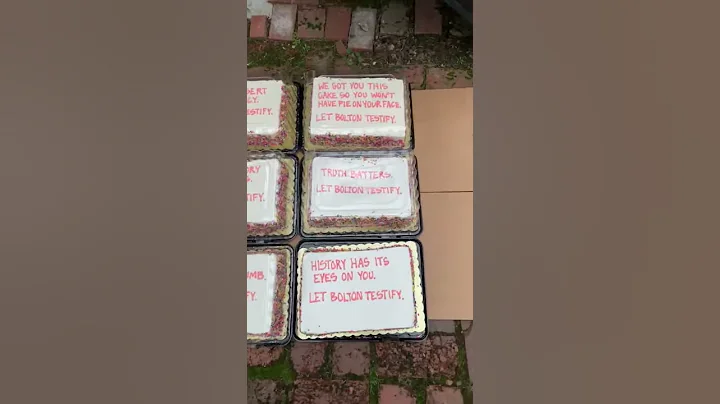 WE GOT YOU THIS
CAKE SO YOU WON'T
HAVE PIE ON YOUR FACE.
LET BOLTON TESTIFY.
TRUTH BATTERS.
LET BOLTON TESTIFY.
HISTORY HAS ITS
EYES ON YOU.
LET BOLTON TESTIFY.